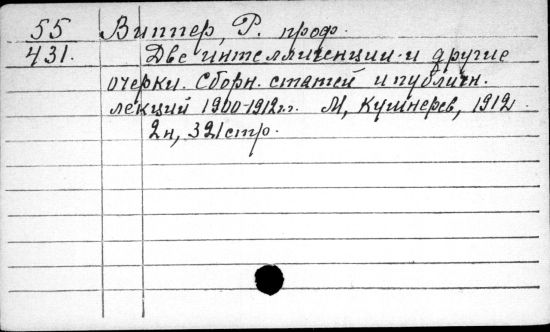 55 Виппер, Р. проф.
431. Две интеллигенции и другие
очерки. Сборн. статей и публичн.
лекций 1900-1912 г.г. М, Кушнерев, 1912.
2н, 321 стр.